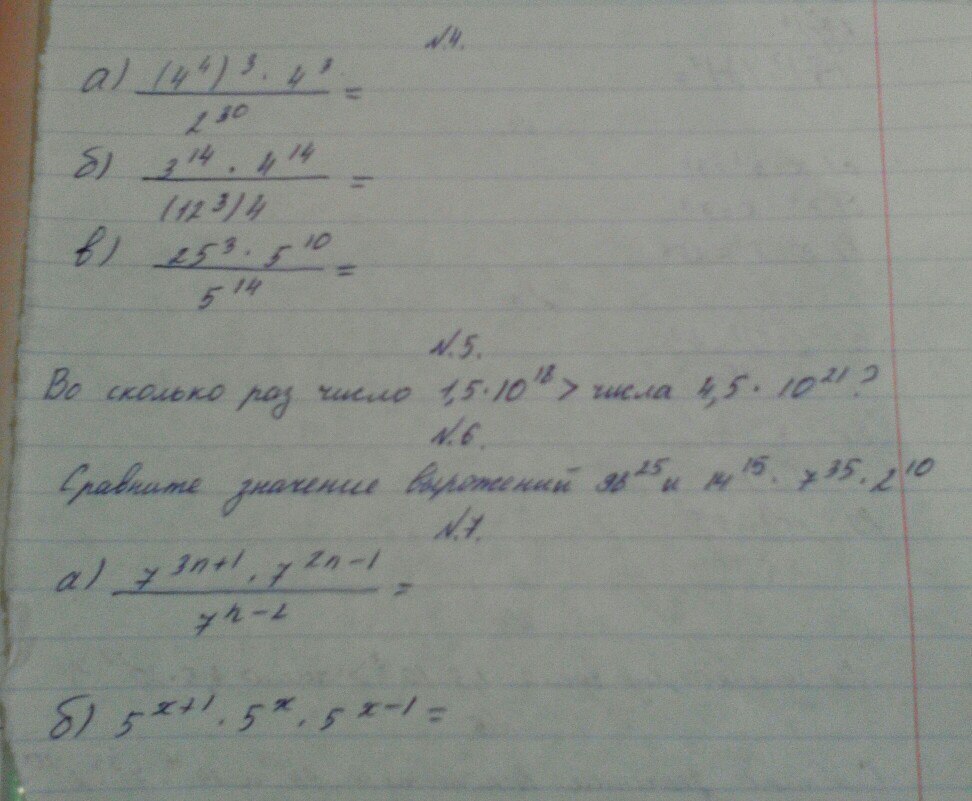 №4.
а) (4⁴)³ · 4³ / 2³⁰ =
б) 3¹⁴ · 4¹⁴ / (12³)4 =
в) 25³ · 5¹⁰ / 5¹⁴ =
№5.
Во сколько раз число 1,5·10¹⁸ > числа 4,5 · 10²¹?
№6.
Сравните значение выражений 98²⁵ и 14¹⁵ · 7³⁵ · 2¹⁰
№7.
а) 7³ⁿ⁺¹ · 7²ⁿ⁻¹ / 7ⁿ⁻¹ =
б) 5ˣ⁺¹ · 5ˣ · 5ˣ⁻¹ =